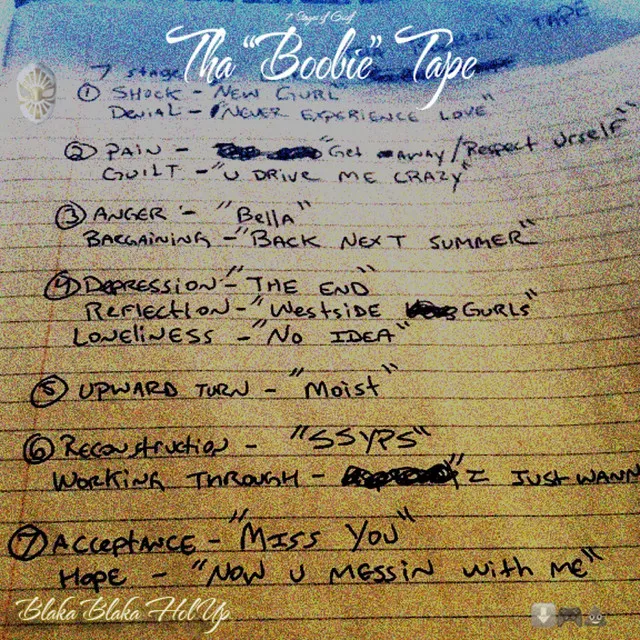 7 Stages of Grief
TAPE
Tha "Boobie" Tape
7 stage
① SHOCK - NEW GURL
DENIAL - "NEVER EXPERIENCE LOVE"
② PAIN - "Get Away/Respect Urself"
GUILT - "U DRIVE ME CRAZY"
③ ANGER - "Bella"
BARGAINING - "BACK NEXT SUMMER"
④ DEPRESSION - "THE END"
REFLECTION - "Westside GURLS"
LONELINESS - "NO IDEA"
⑤ UPWARD TURN - "Moist"
⑥ Reconstruction - "SSYPS"
WORKING THROUGH - "I JUST WANN
⑦ ACCEPTANCE - "MISS YOU"
HOPE - "NOW U MESSIN WITH ME"
Blaka Blaka Hol Up